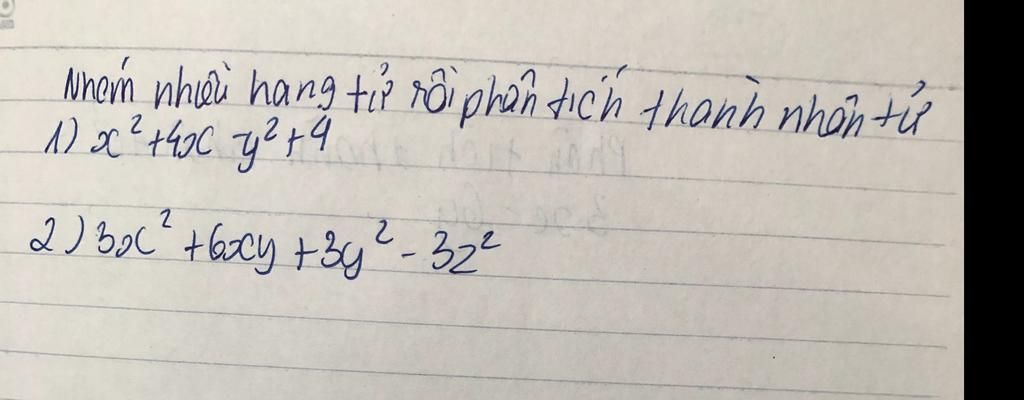 Nhóm nhiều hang tử rồi phân tích thành nhân tử
1) x² + 4x - y² + 4
2) 3x² + 6xy + 3y² - 3z²